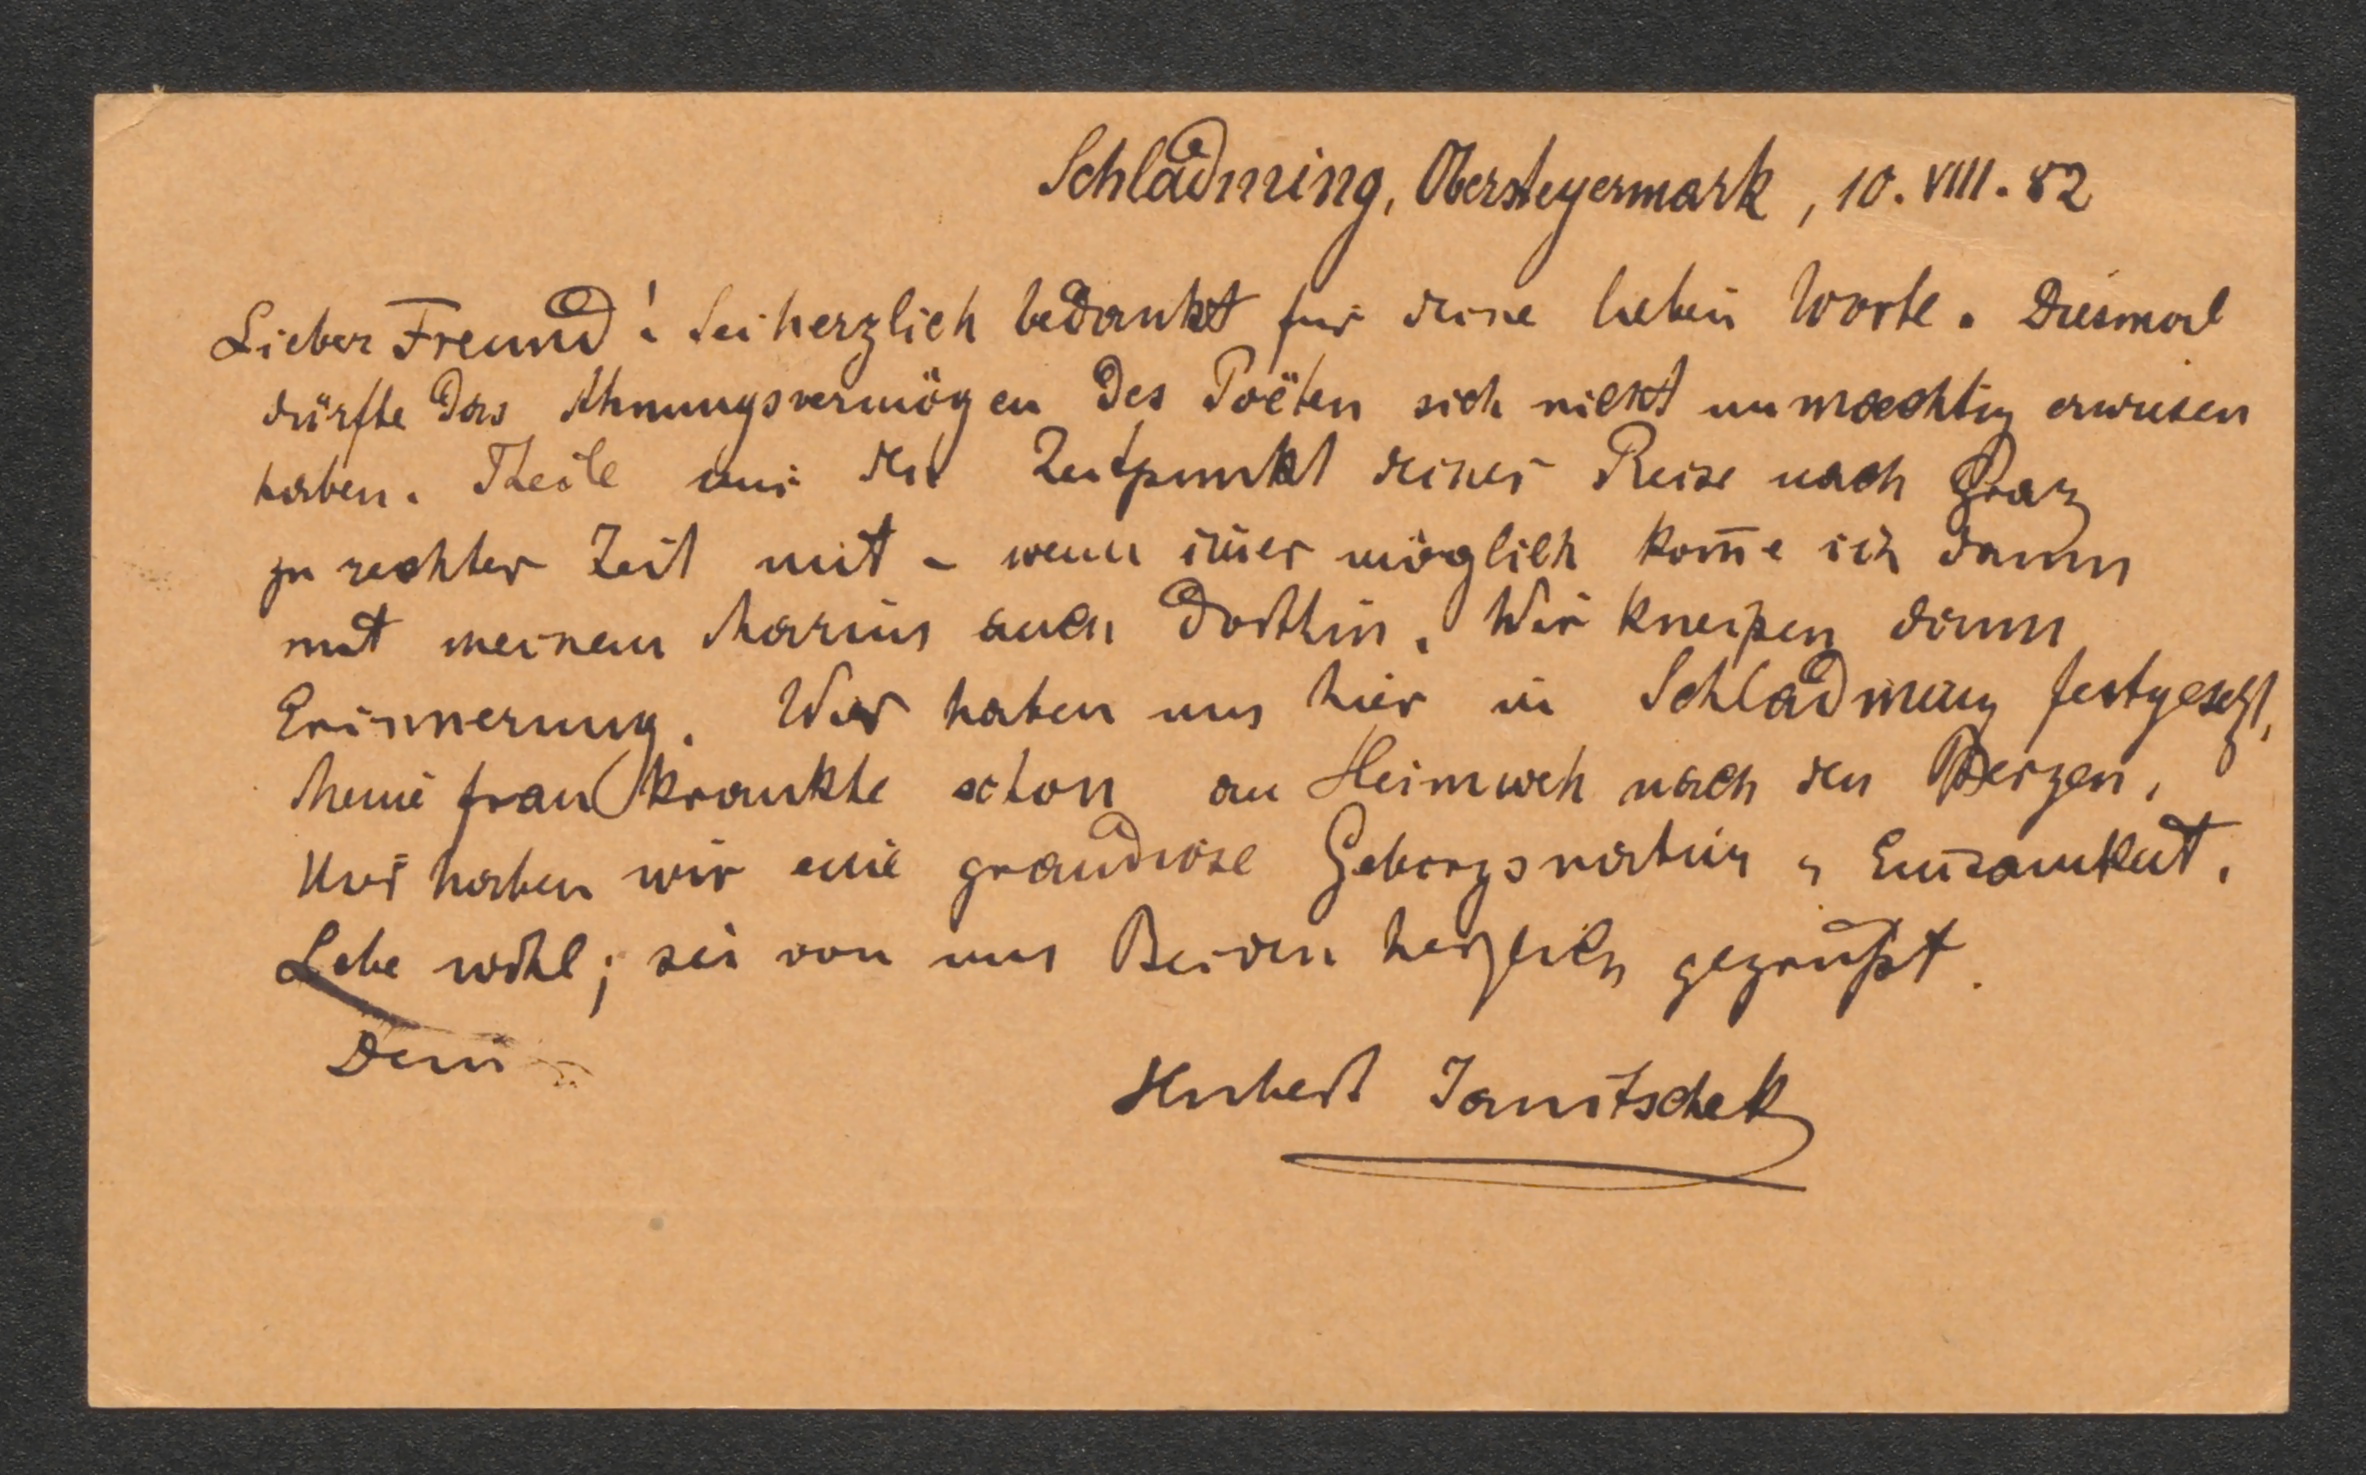 Schladming, Obersteyermark, 10.VIII.82
Lieber Freund! Sei herzlich bedankt für deine lieben Worte. Diesmal
dürfte das Ahnungsvermögen des Poëten sich nicht unmaechtig erwiesen
haben. Theile mir den Zeitpunkt deiner Reise nach Graz
zu rechter Zeit mit - wenn im̄er möglich kom̄e ich dann
mit meinem Marius auch dorthin. Wir kneipen dann
Erinnerung. Wir haben uns hier in Schladming festgesetzt,
Meine Frau krankte schon an Heimweh nach den Bergen,
Hier haben wir eine grandiose Gebirgsnatur u Einsamkeit.
Lebe wohl; sei von uns Beiden herzlich gegrüßt.
Dein
Hubert Janitschek